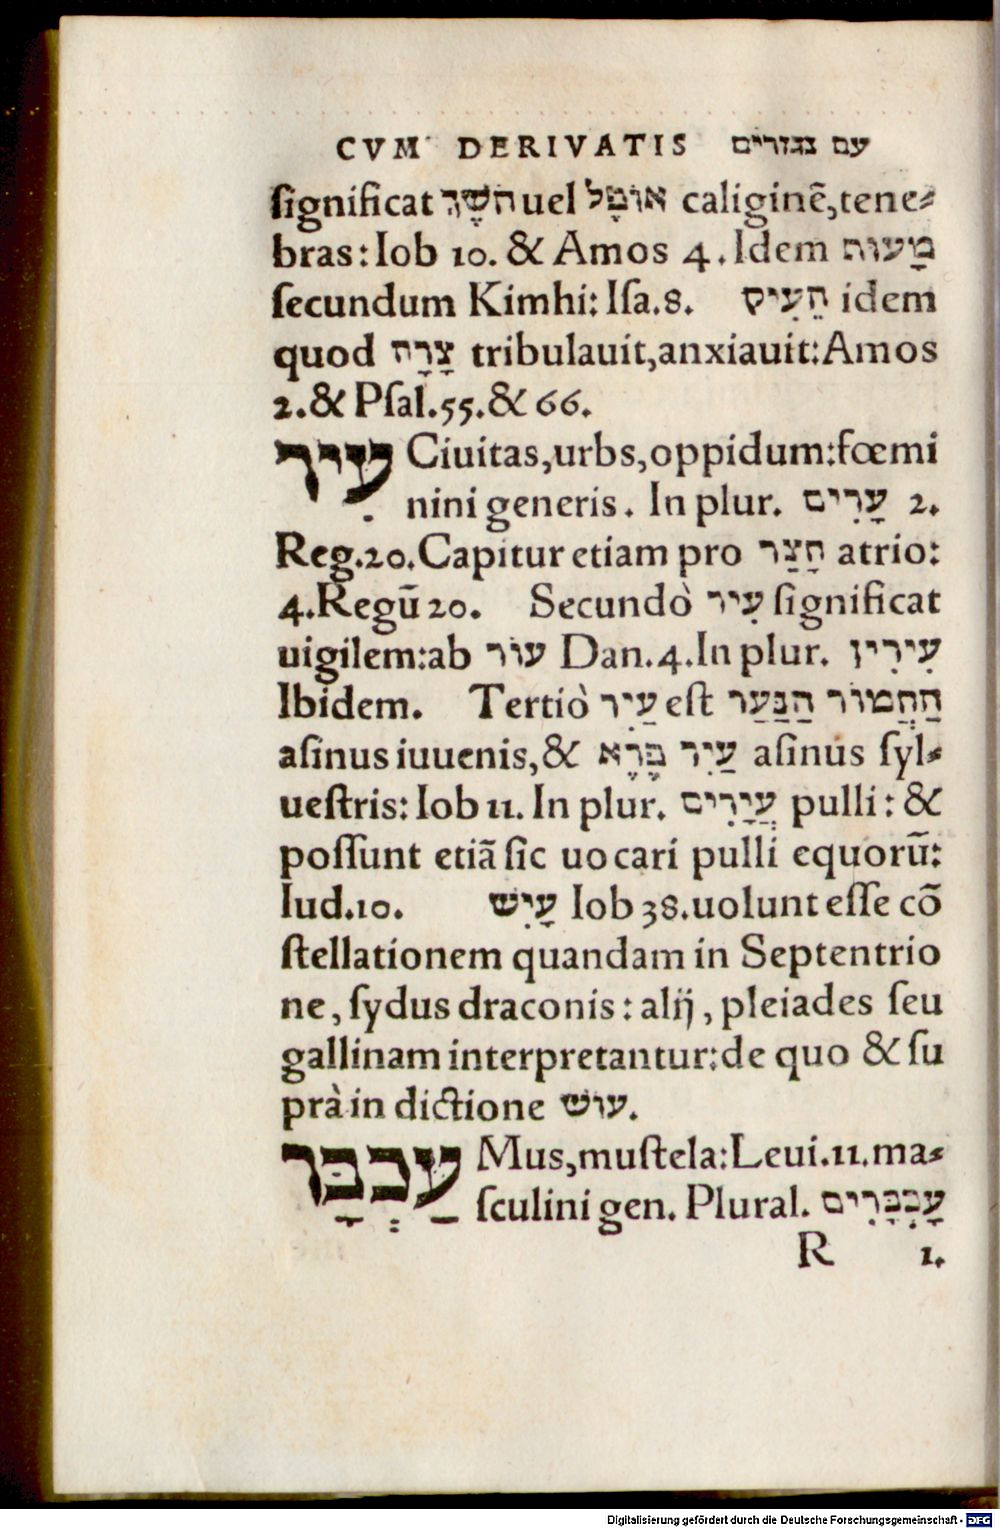 CVM DERIVATIS עם נגזרים
ſignificat חשֶׁךְ uel אוֹפֶל caliginē, tene⸗
bras: Iob 10. & Amos 4. Idem מָעוּת
ſecundum Kimhi: Iſa.8. הֵעִיק idem
quod צָרָה tribulauit, anxiauit: Amos
2. & Pſal.55. & 66.
עִיר Ciuitas, urbs, oppidum: fœmi
nini generis. In plur. עָרִים 2.
Reg.20. Capitur etiam pro חָצַר atrio:
4. Regū 20. Secundò עִיר ſignificat
uigilem: ab עוֹר Dan.4. In plur. עִירִין
Ibidem. Tertiò עַיִר eſt הַחֲמוֹר הַנַּעַר
aſinus iuuenis, & עַיִר פֶּרֶא aſinus ſyl⸗
ueſtris: Iob 11. In plur. עֲיָרִים pulli: &
poſſunt etiā ſic uocari pulli equorū:
Iud.10. עָיִשׁ Iob 38. uolunt eſſe cō
ſtellationem quandam in Septentrio
ne, ſydus draconis: alij, pleiades ſeu
gallinam interpretantur: de quo & ſu
prà in dictione עוּשׁ.
עַכְבָּר Mus, muſtela: Leui.11. ma⸗
ſculini gen. Plural. עָכְבָּרִים
R 1.
Digitalisierung gefördert durch die Deutsche Forschungsgemeinschaft - DFG